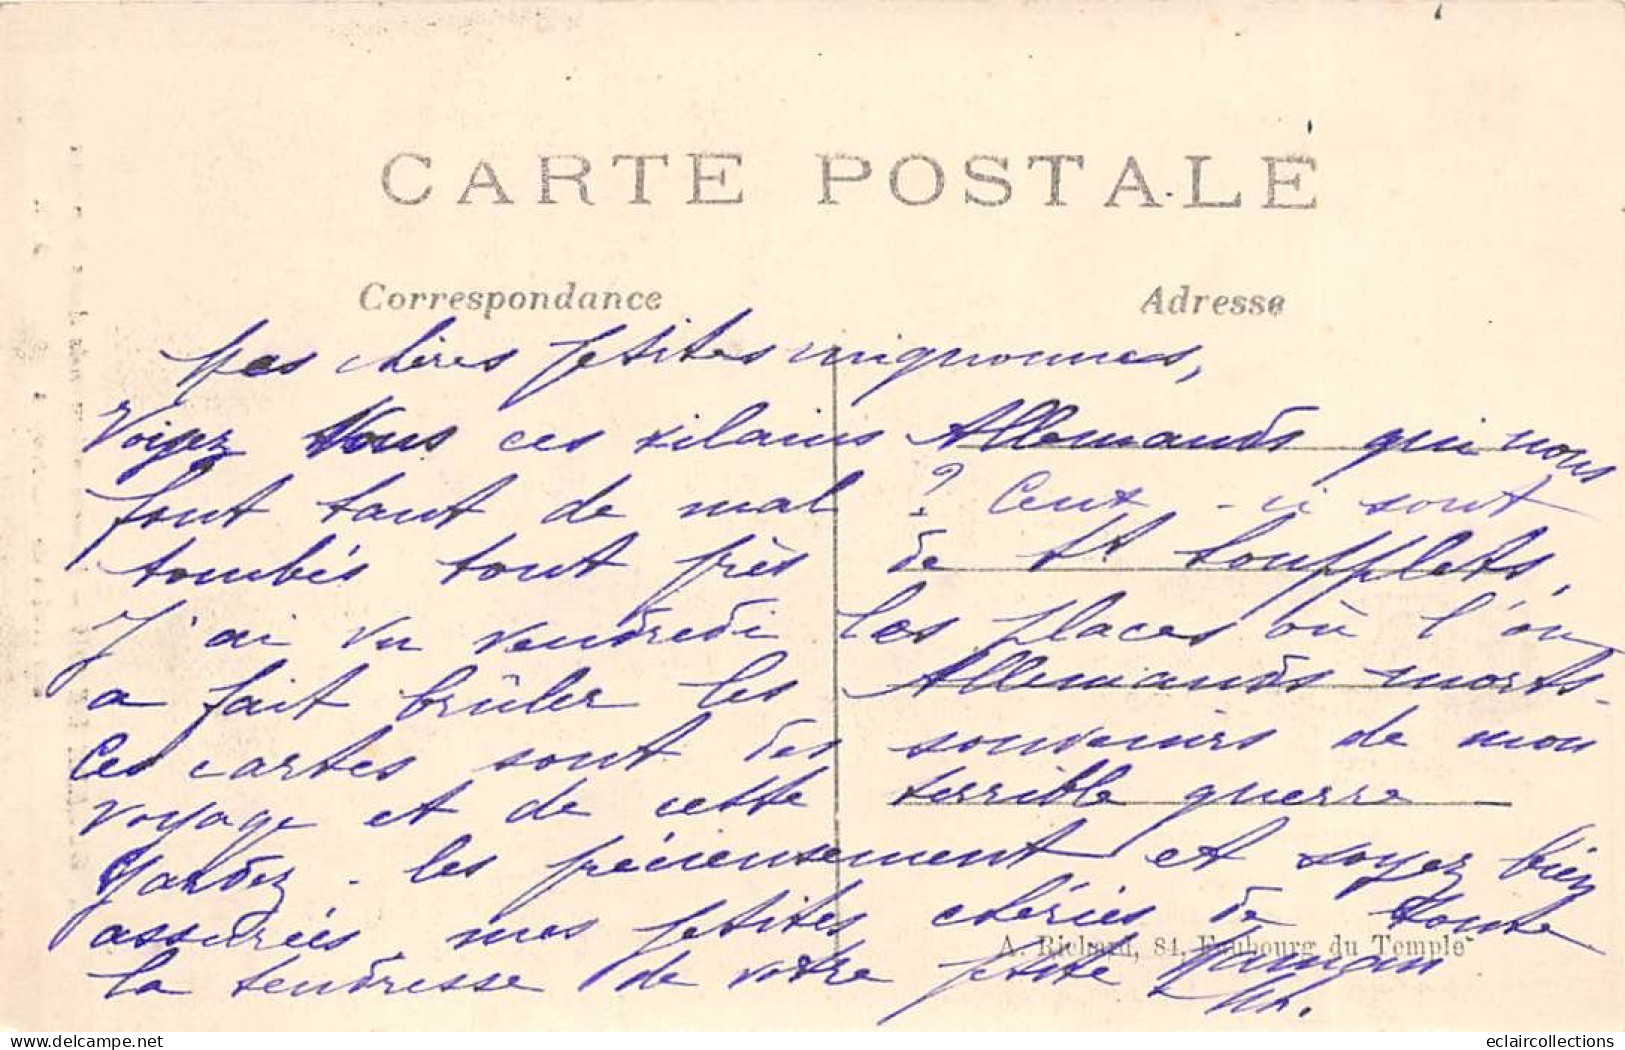 CARTE POSTALE
Correspondance
Adresse
Mes chères petites mignonnes,
Voyez vous ces vilains Allemands qui nous
font tant de mal ? Ceux-ci sont
tombés tout près de St Soufflets,
J'ai vu vendredi les places où l'on
a fait brûler les Allemands morts.
Ces cartes sont des souvenirs de mon
voyage et de cette terrible guerre
Gardez-les précieusement et soyez bien
assurées, mes petites chéries de toute
la tendresse de votre petite Maman
Ch.
A. Richard, 84, Faubourg du Temple
eclaircollections